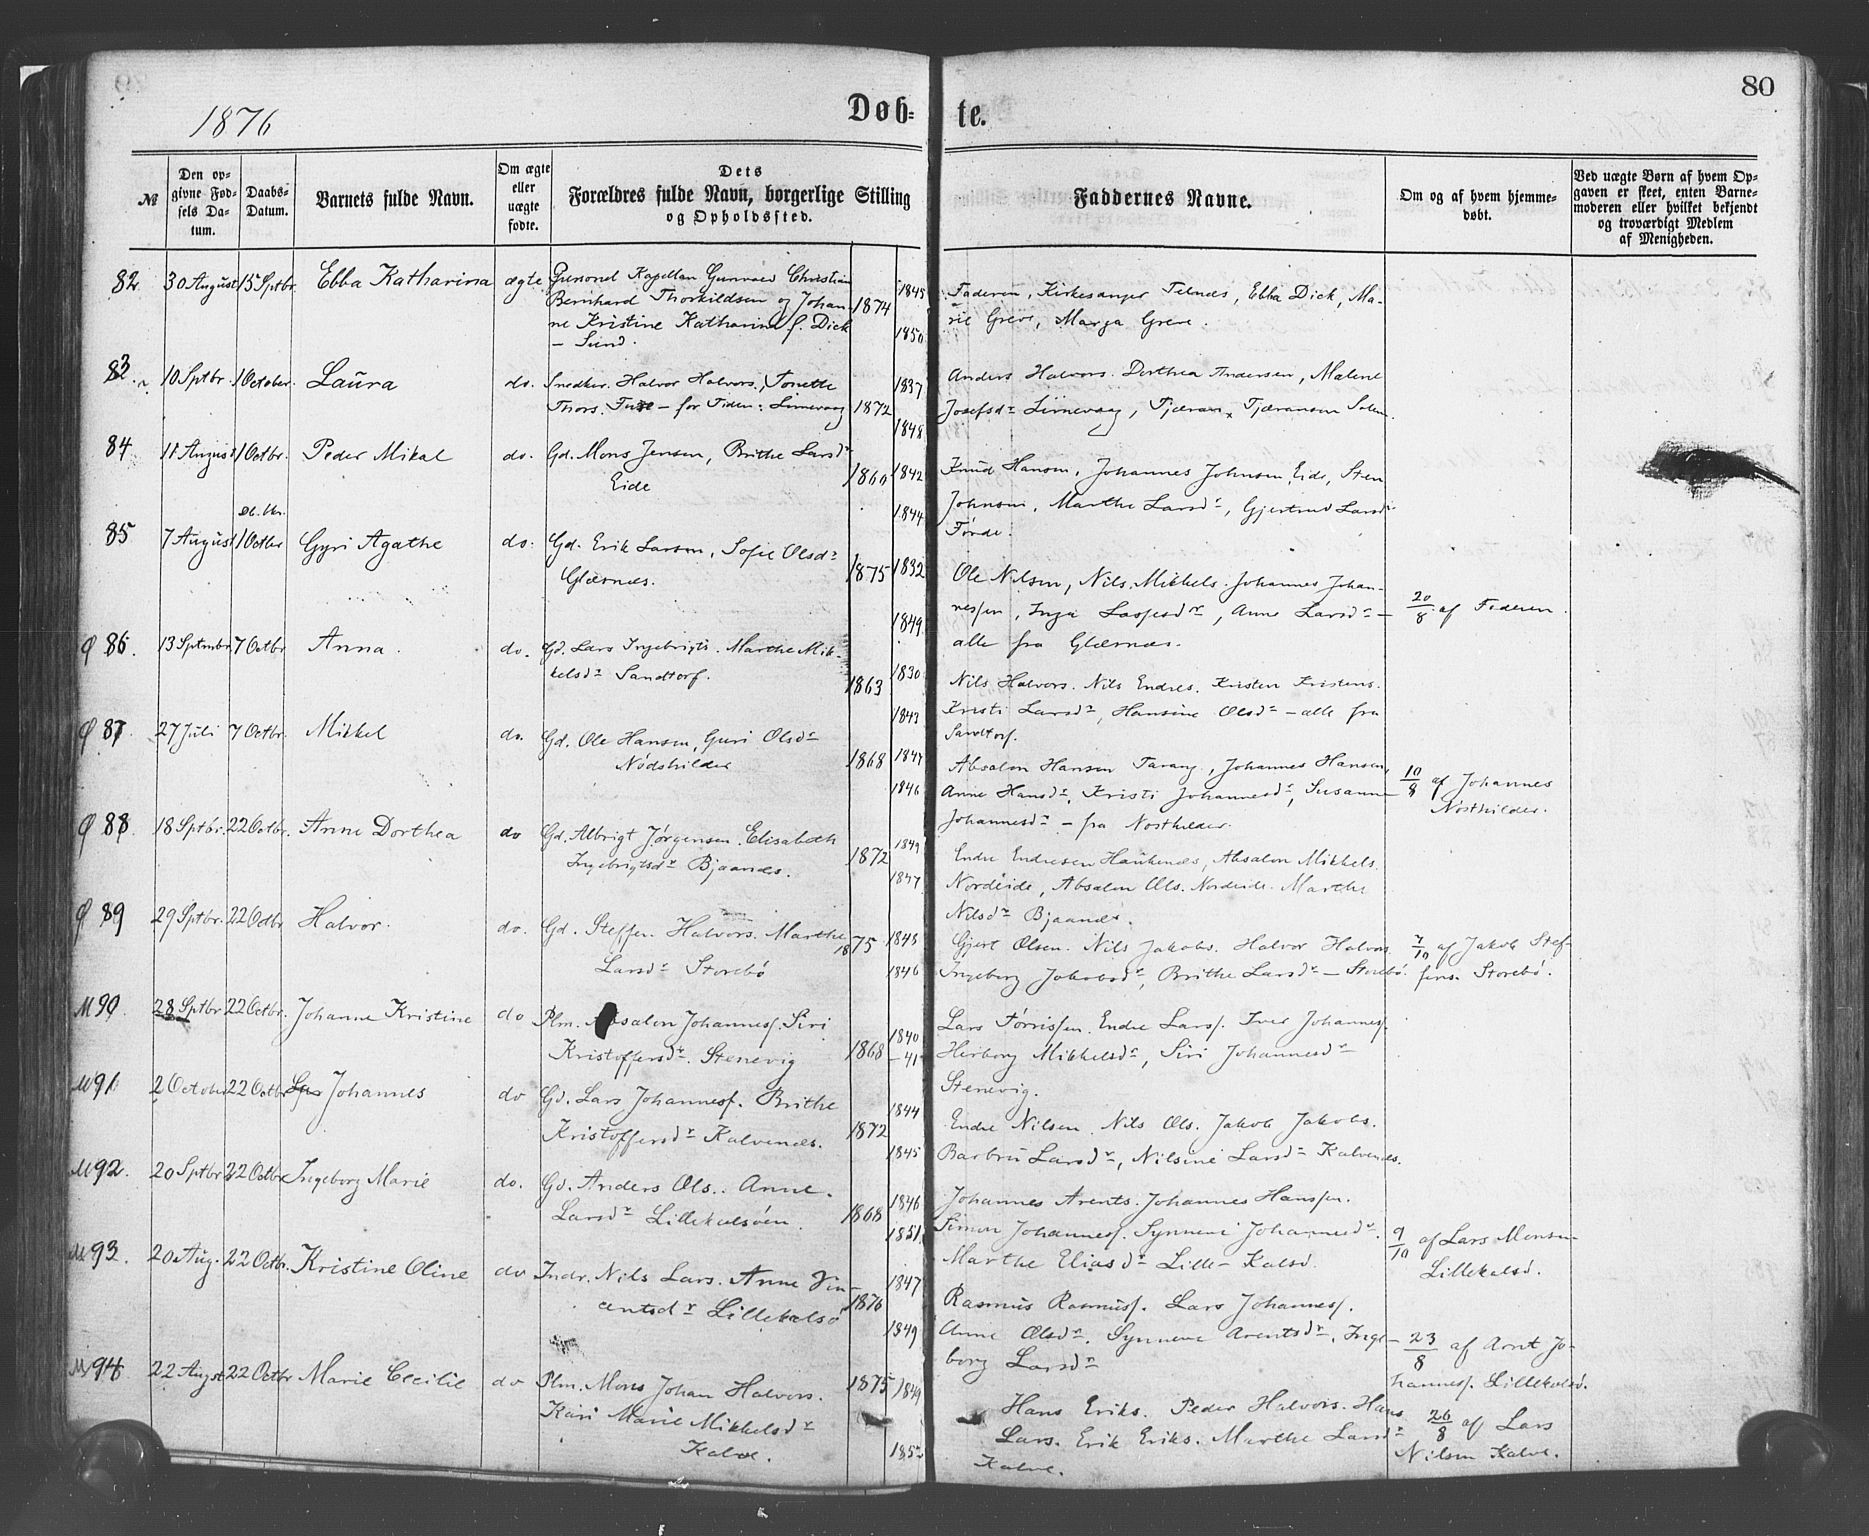 1876
Døb=
te.
80
№
Den op-
givne Fød-
sels Da-
tum.
Daabs-
Datum.
Barnets fulde Navn.
Om ægte
eller
uægte
fødte.
Dets
Forældres fulde Navn, borgerlige Stilling
og Opholdssted.
Faddernes Navne.
Om og af hvem hjemme-
døbt.
Ved uægte Børn af hvem Op-
gaven er skeet, enten Barne-
moderen eller hvilket bekjendt
og troværdigt Medlem
af Menigheden.
82. 30 August 15 Sptbr. Ebba Katharina ægte
Personel Kapellan Gunvald Christian
Bernhard Thorkildsen og Johan-
ne Kristine Katharina f. Dick
– Sund.
1874
1845
1850
Faderen, Kirkesanger Telnes, Ebba Dick, Ma-
rie Greve, Marga Greve.
83. 10 Sptbr. 1 October. Laura do.
Snedker. Halvor Halvors., Tonette
Thors. – for Tiden: Limevaag
1872
1837
1848
Anders Halvors. Dorthea Andersen, Malene
Josefsdr Limevaag, Tjæransen
84 11 August 1 Octbr. Peder Mikal do.
Gd. Mons Jensen, Brithe Larsdr
Eide
1860
1842
1844
Knud Hansen, Johannes Johnsen, Eide, Sten
Johnsen, Marthe Larsdr, Gjertrud Larsdr
Førde.
85 7 August 1 Octbr Gyri Agathe do.
Gd. Erik Larsen, Sofie Olsdr
Glæsnæs.
1875
1832
1849
Ole Nilsen, Nils Mikkels. Johannes Johan-
nessen, Inga, Anne Larsdr –
alle fra Glæsnæs.
20/8 af Faderen.
Ø 86. 13 Septmbr. 7 Octbr Anna. do.
Gd. Lars Ingebrigts. Marthe Mik-
kelsdr Sandtorf.
1863
1830
1843
Nils Halvors. Nils Endres. Kristen Kristens.
Kristi Larsdr, Hansine Olsdr – alle fra
Sandtorf.
Ø 87. 27 Juli 7 Octbr. Mikkel do.
Gd. Ole Hansen, Guri Olsdr
Nødshilder
1868
1847
1846
Absalon Hansen Tarang, Johannes Hansen,
Anne Hansdr, Kristi Johannesdr, Susanne
Johannesdr – fra Nosthilder.
10/8 af Johannes
Nosthilder.
Ø 88. 18 Sptbr. 22 Octbr. Anne Dorthea do
Gd. Albrigt Jørgensen. Elisabeth
Ingebrigtsdr Bjaanæs.
1872
1849
1847
Endre Endresen Haukenæs, Absalon Mikkels.
Nordeide, Absalon Ols. Nordeide. Marthe
Nilsdr Bjaanæs.
Ø 89 29 Sptbr. 22 Octbr Halvor. do.
Gd. Steffen Halvors. Marthe
Larsdr Storebø
1875
1848
1846
Gjert Olsen. Nils Jakobs. Halvor Halvors
Ingeborg Jakobsdr, Brithe Larsdr – Storebø.
7/10 af Jakob Stef-
fens. Storebø.
M 90. 28 Sptbr 22 Octbr. Johanne Kristine do
Plm. Absalon Johannesf. Siri
Kristoffersdr. Stenevig
1868
1840
– 41
Lars Tørrissen. Endre Larsf. Iver Johannesf.
Herborg Mikkelsdr, Siri Johannesdr
Stenevig.
M 91 2 October 22 Octbr Johannes do
Gd. Lars Johannesf. Brithe
Kristoffersdr Kalvenæs.
1872
1844
1845
Endre Nilsen. Nils Ols. Jakob Jakobs.
Barbru Larsdr, Nilsine Larsdr Kalvenæs.
M 92. 20 Sptbr 22 Octbr Ingeborg Marie do.
Gd. Anders Ols. Anne
Larsdr Lillekalsøen.
1868
1846
1851
Johannes Arents. Johannes Hanssen.
Simon Johannesf. Synneve Johannesdr.
Marthe Eliasdr Lille-Kalsø.
9/10 af Lars Monsen
Lillekalsø.
M 93. 20 Aug. 22 Octbr. Kristine Oline do
Indr. Nils Lars. Anne Vin-
centsdr Lillekalsø
1876
1847
1849
Rasmus Rasmusf. Lars Johannesf.
Anne Olsdr. Synneve Arentsdr. Inge-
borg Larsdr
23/8 af Arnt Jo-
hannesf. Lillekalsø.
M 94 22 Augst 22 Octbr Marie Cecilie do
Plm. Mons Johan Halvors.
Kari Marie Mikkelsdr
Kalve.
1875
1849
1852
Hans Eriks. Peder Halvors. Hans
Lars. Erik Eriks. Marthe Larsdr
Kalve.
26/8 af Lars
Nilsen Kalve.